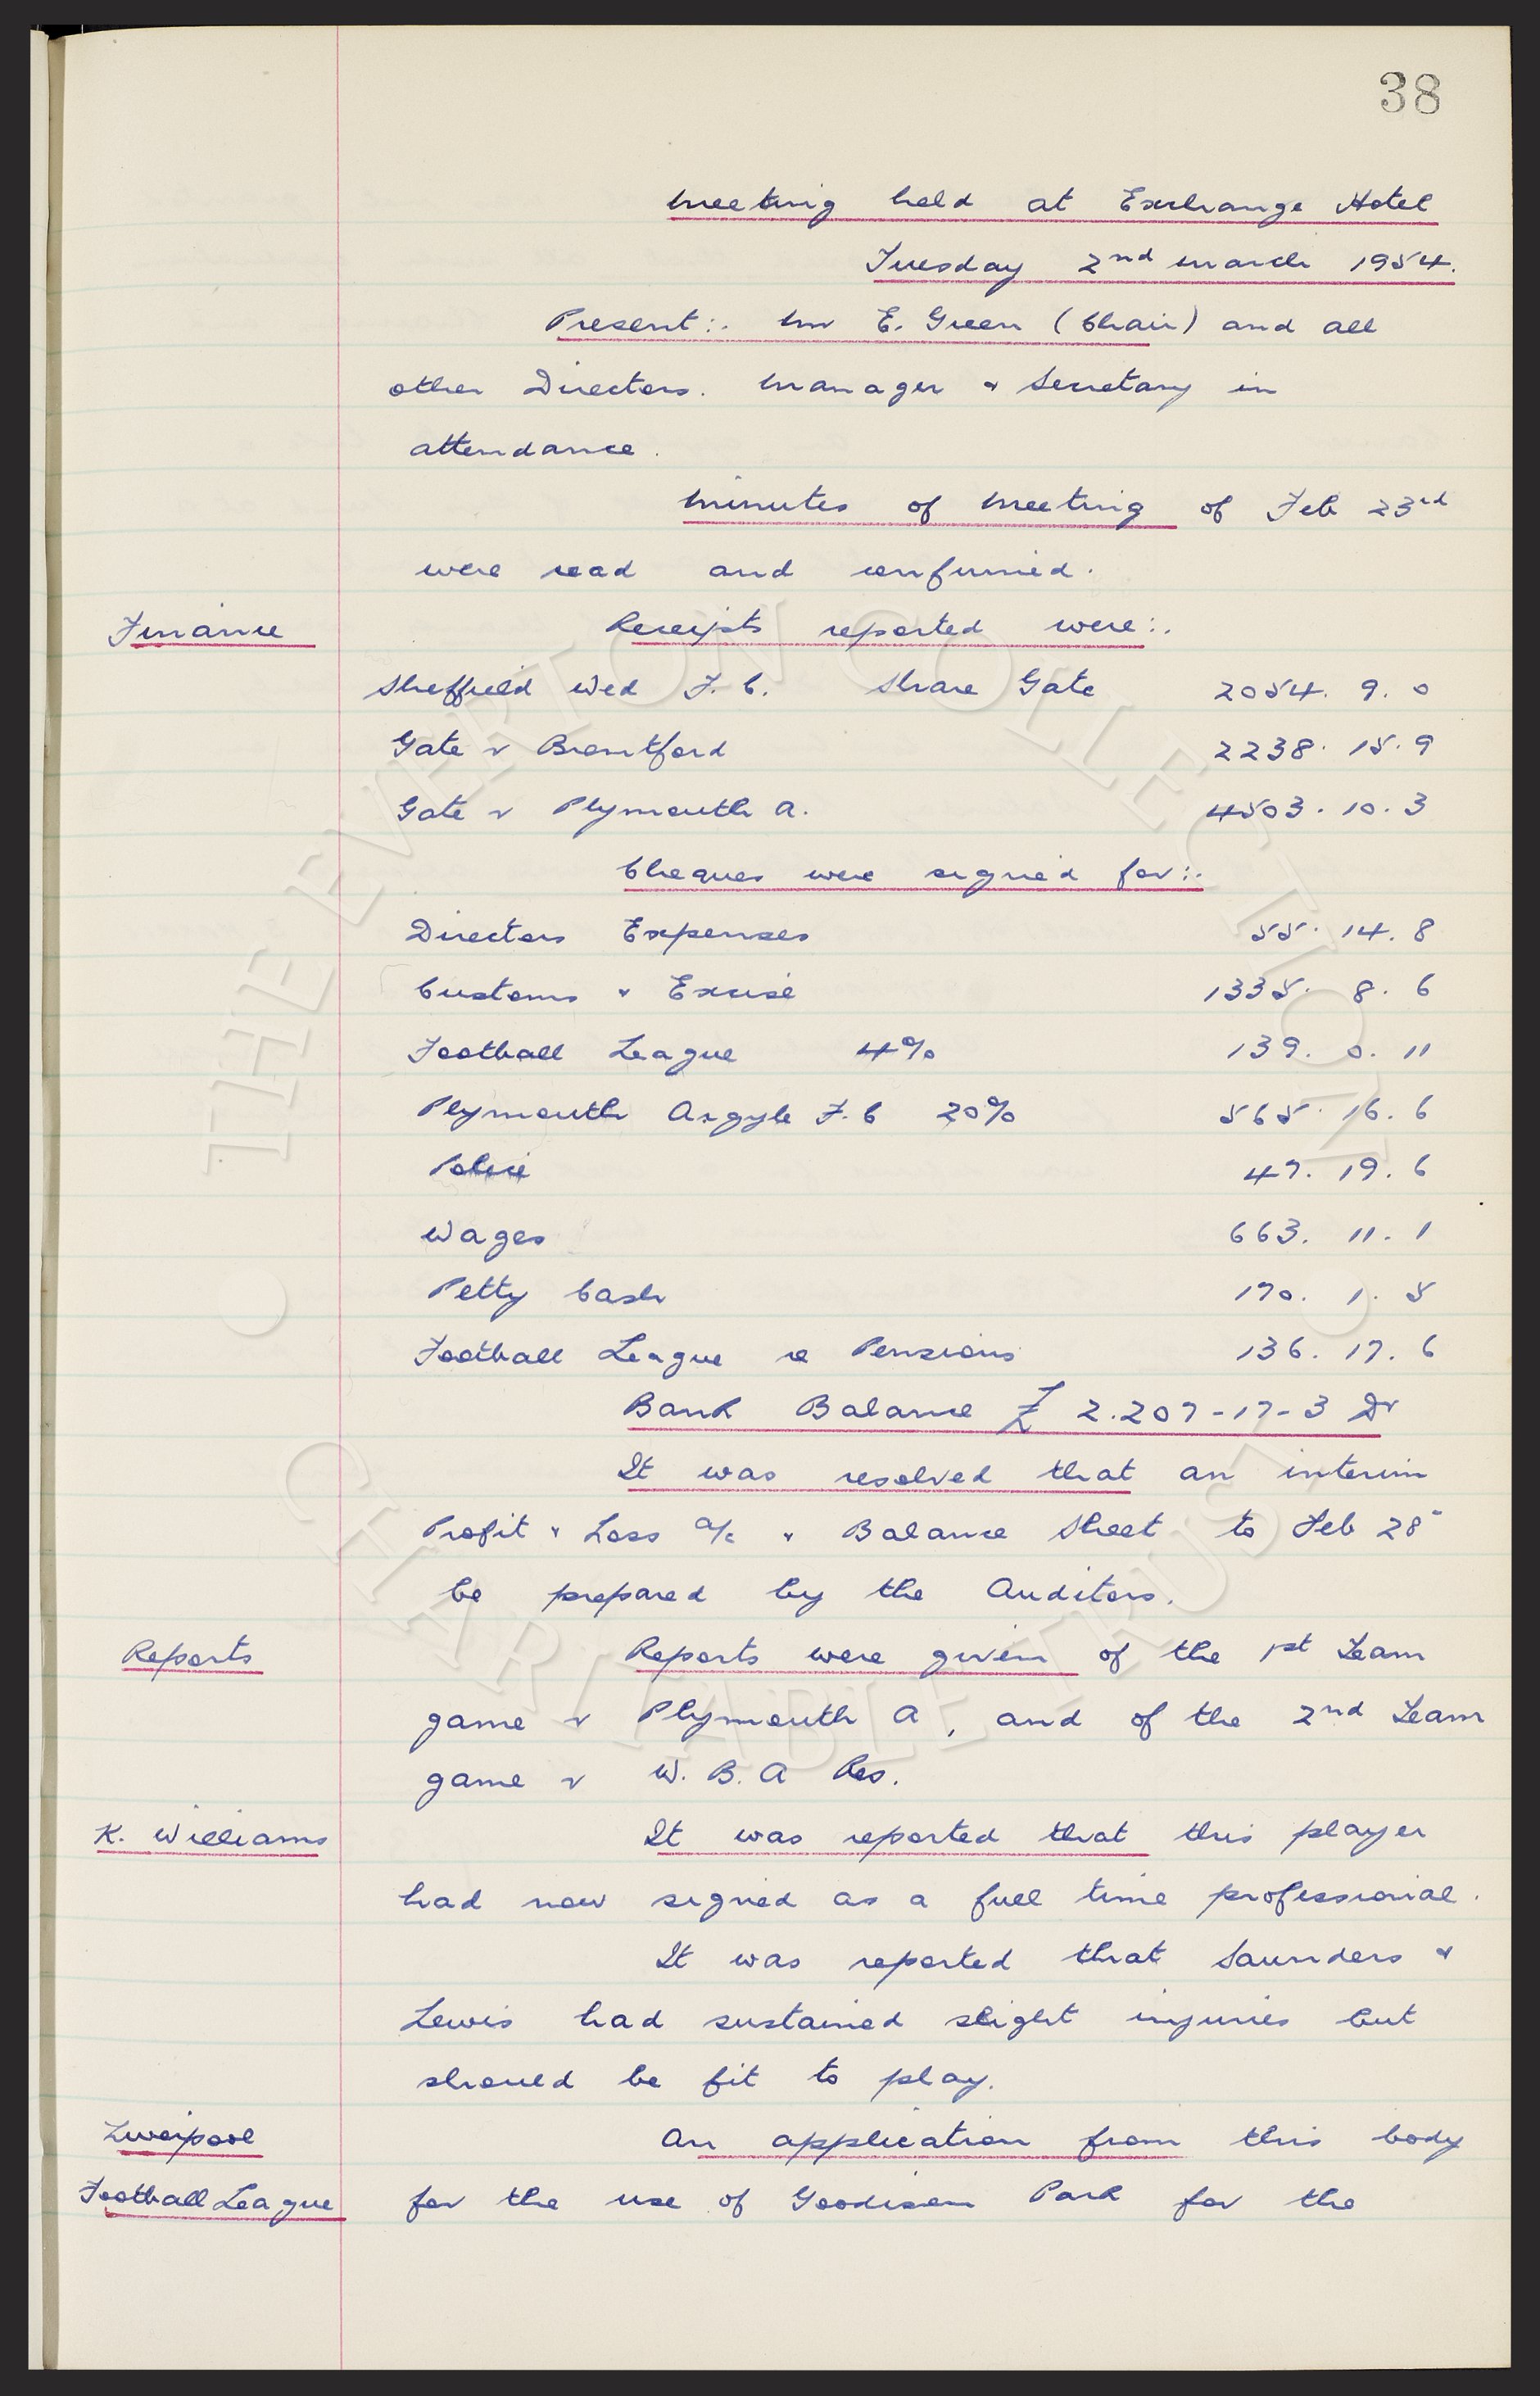 38
Meeting held at Exchange Hotel
Tuesday 2nd March 1954.
Present:. Mr E. Green (Chair) and all
other Directors. Manager & Secretary in
attendance.
Minutes of Meeting of Feb 23rd
were read and confirmed.
Finance Receipts reported were:.
Sheffield Wed F.C. Share Gate 2054. 9. 0
Gate v Brentford 2238. 15. 9
Gate v Plymouth A. 4503. 10. 3
Cheques were signed for:.
Directors Expenses 55. 14. 8
Customs & Excise 1335. 8. 6
Football League 4% 139. 0. 11
Plymouth Argyle F.C 20% 565. 16. 6
Police 47. 19. 6
Wages 663. 11. 1
Petty Cash 170. 1. 5
Football League re Pensions 136. 17. 6
Bank Balance £ 2.207-17-3 Dr
It was resolved that an interim
Profit & Loss a/c & Balance Sheet to Feb 28"
be prepared by the Auditors.
Reports Reports were given of the 1st Team
game v Plymouth A, and of the 2nd Team
game v W.B.A Res.
K. Williams It was reported that this player
had now signed as a full time professional.
It was reported that Saunders &
Lewis had sustained slight injuries but
should be fit to play.
Liverpool An application from this body
Football League for the use of Goodison Park for the
THE EVERTON COLLECTION
CHARITABLE TRUST